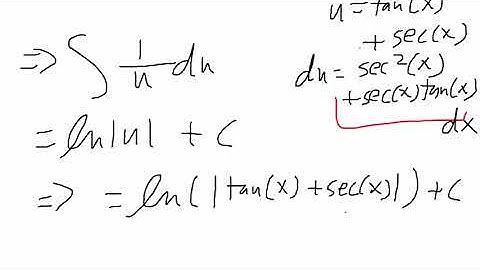 u = tan(x)
+ sec(x)
du = sec²(x)
+sec(x)tan(x)
dx
=> ∫ 1/u du
= ln|u| + c
=> = ln(|tan(x) + sec(x)|) + c